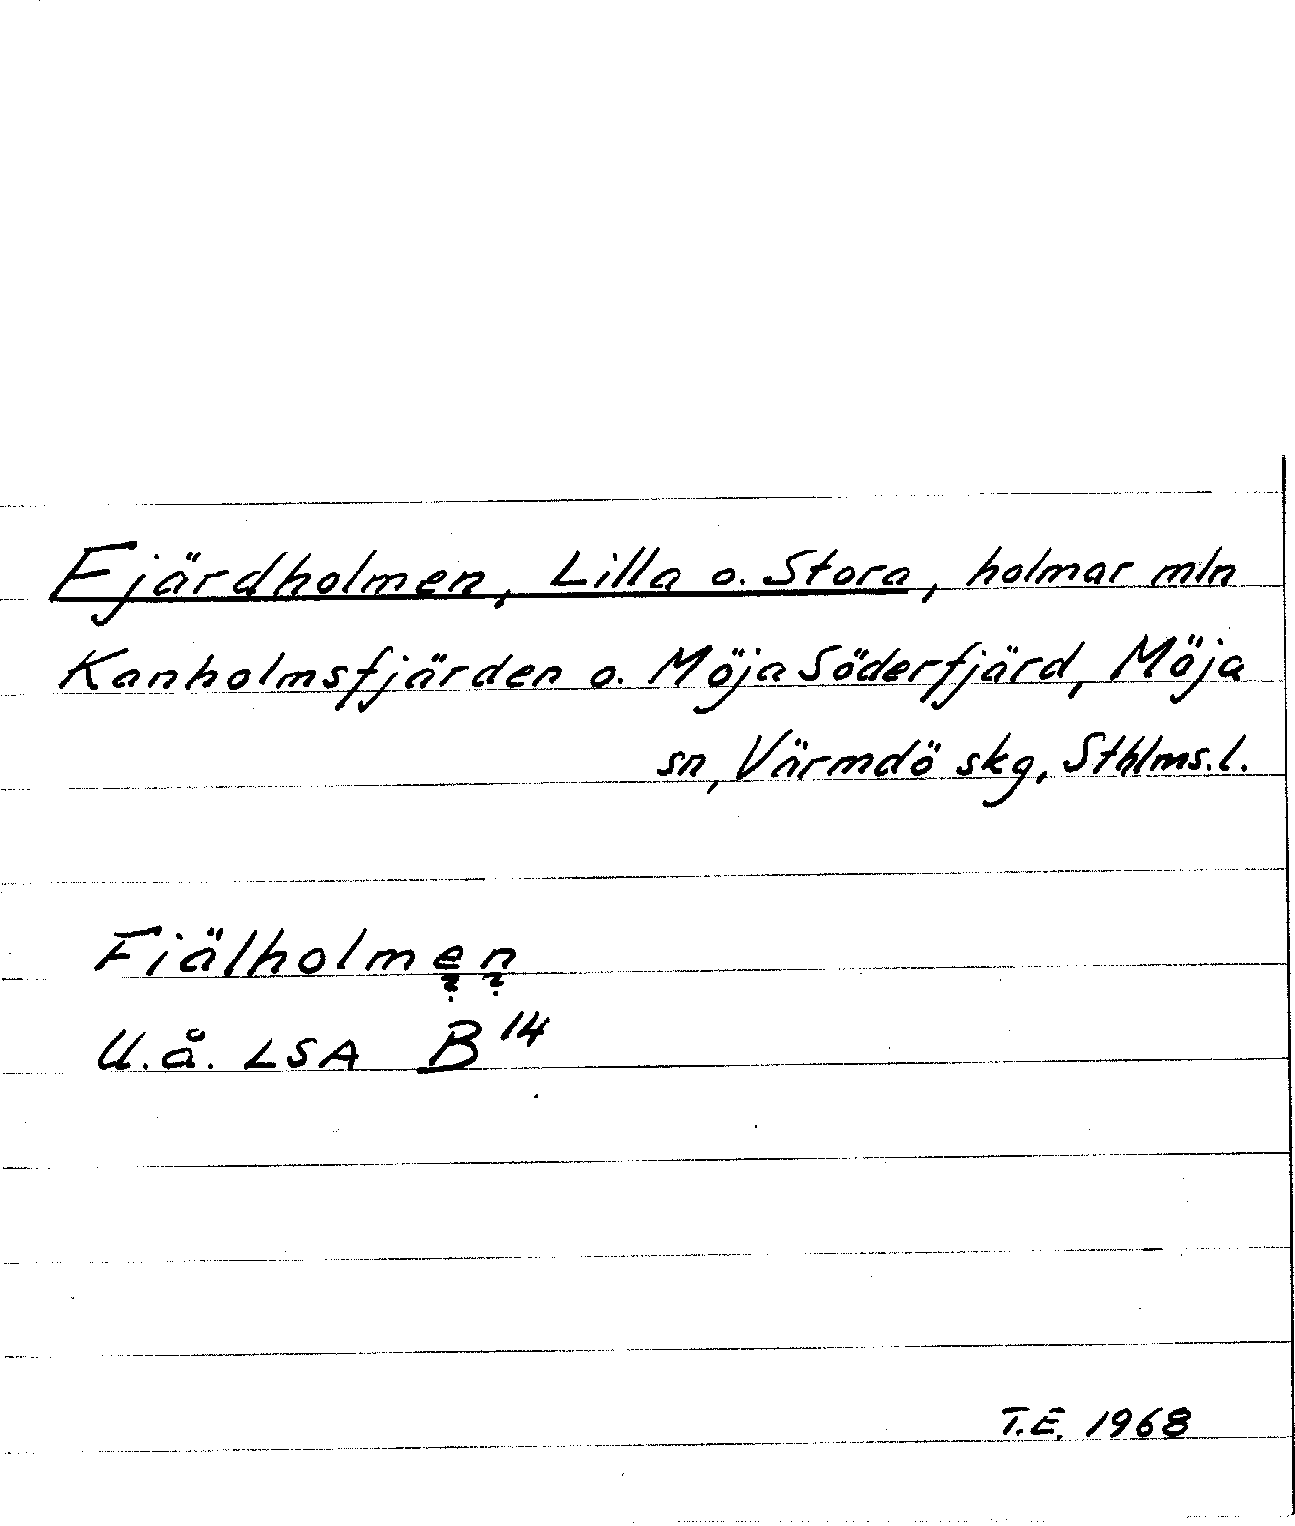 Fjärdholmen, Lilla o. Stora, holmar mln
Kanholmsfjärden o. Möja Söderfjärd, Möja
sn, Värmdö skg, Sthlms. l.
Fiälholmen
? ?
U.å. LSA B 14
T.E. 1968